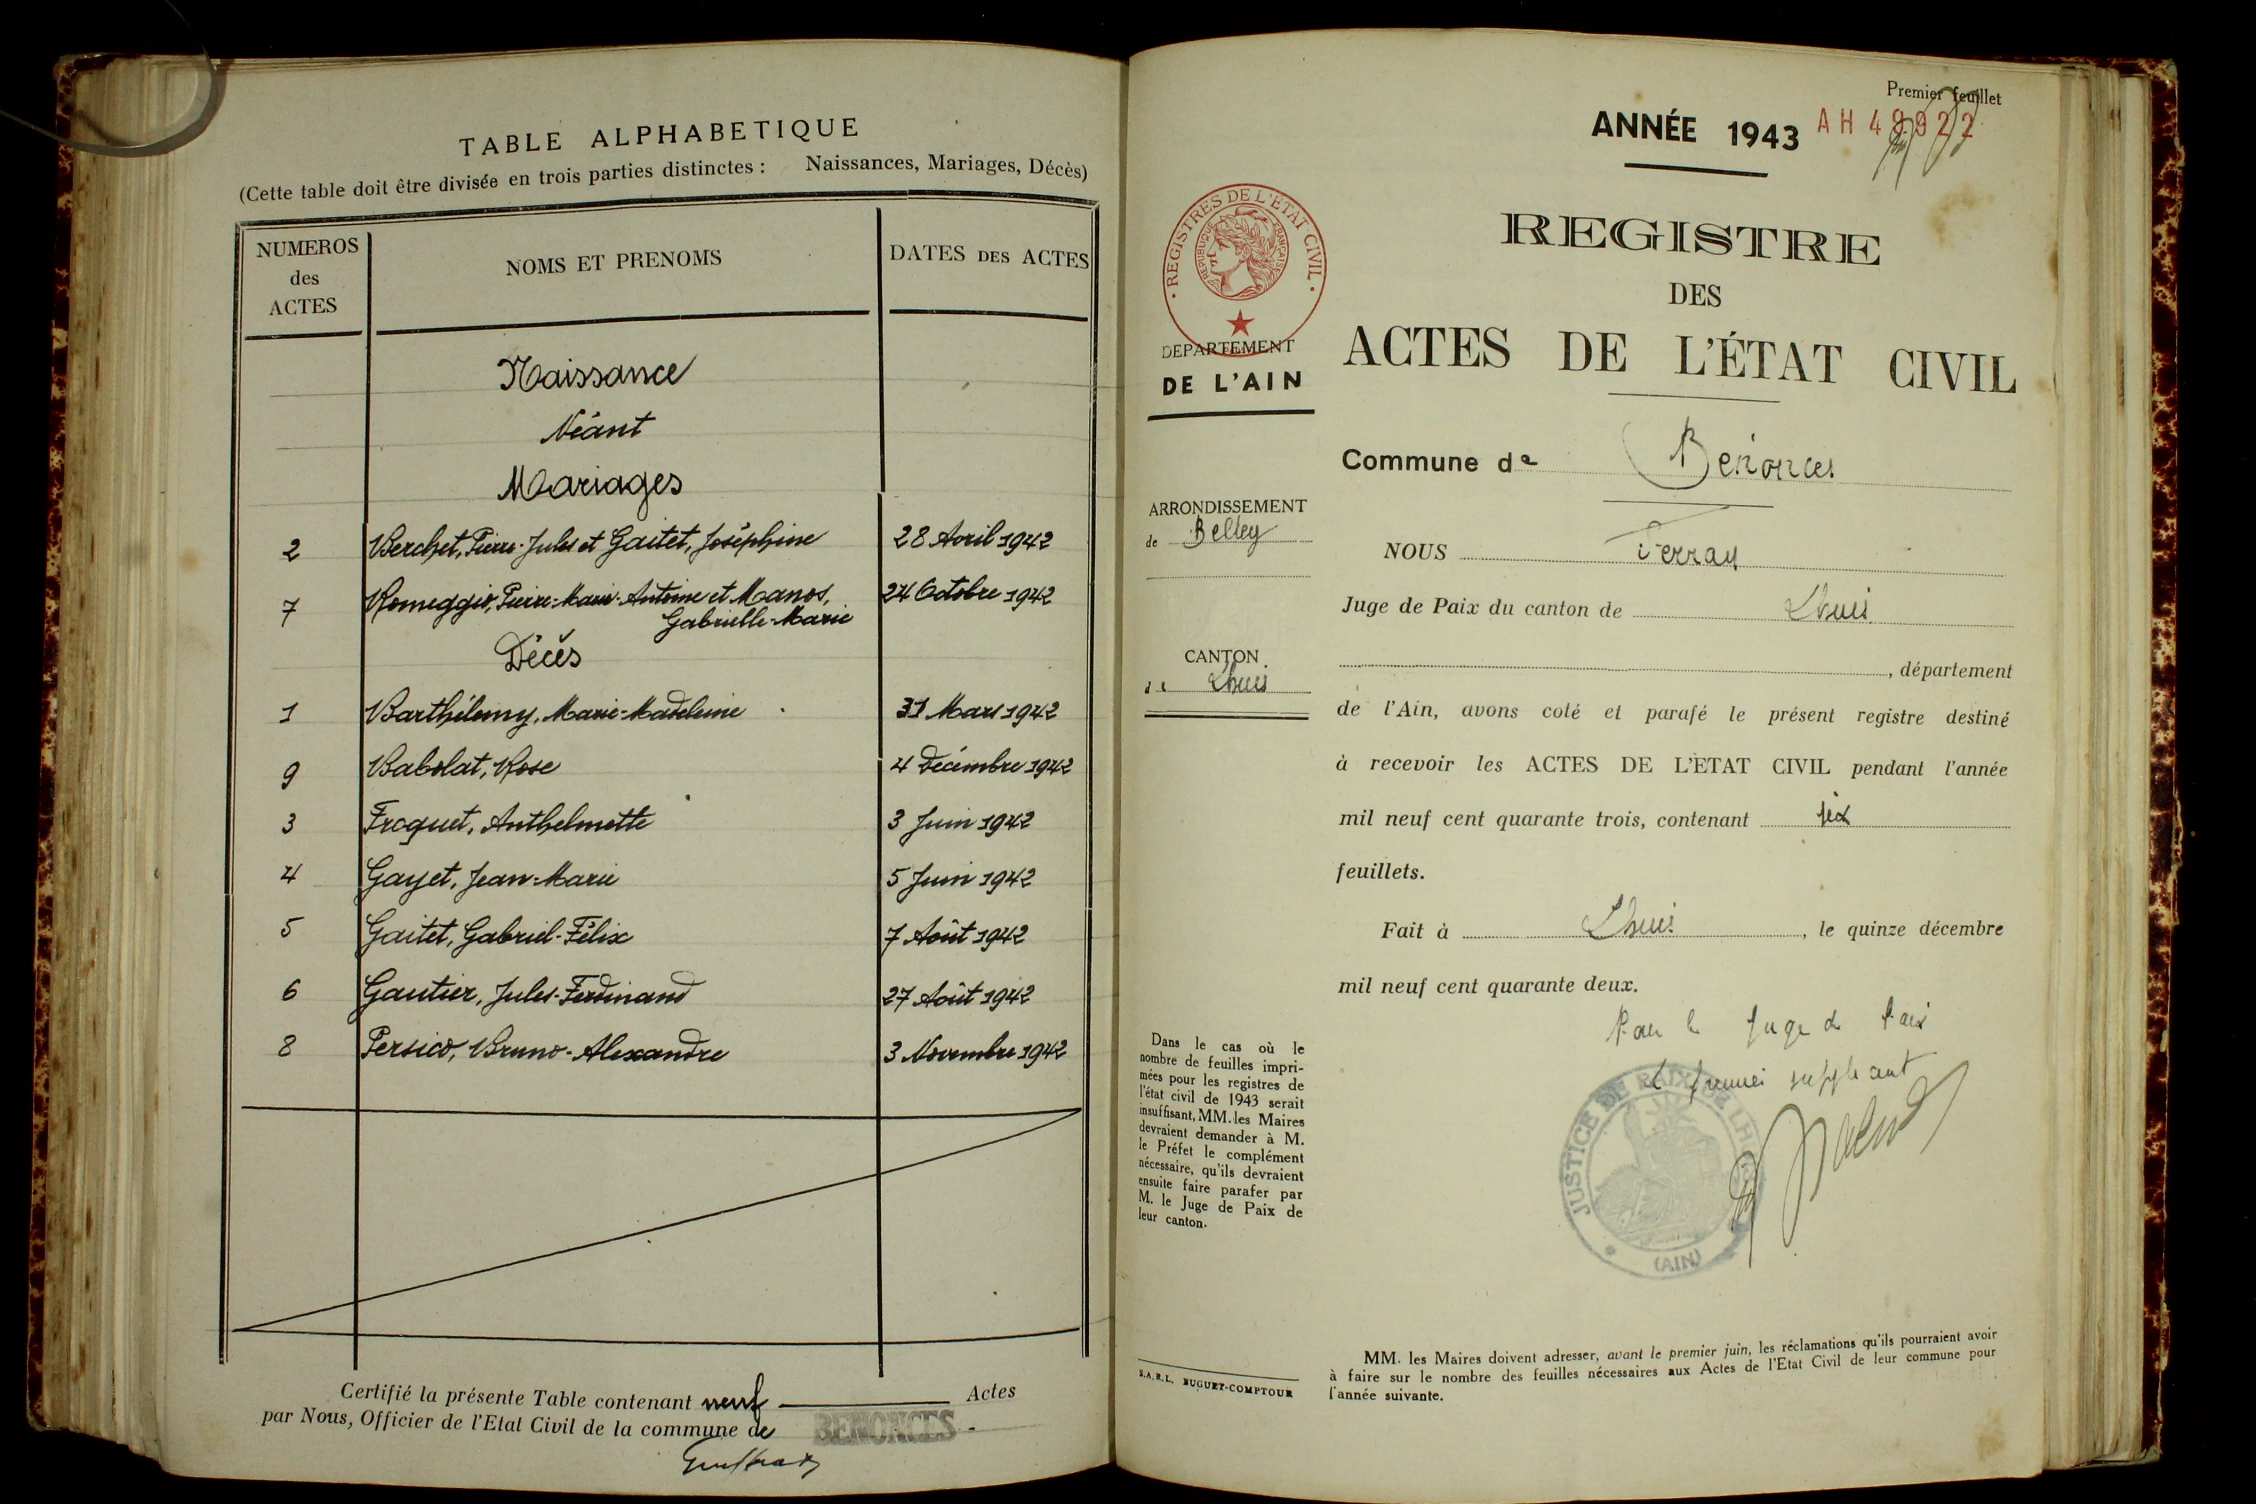 TABLE ALPHABETIQUE
(Cette table doit être divisée en trois parties distinctes : Naissances, Mariages, Décès)
NUMEROS
des
ACTES
NOMS ET PRENOMS
DATES DES ACTES
Naissance
Néant
Mariages
2 Berchet, Pierre-Jules et Gaitet, Joséphine 28 Avril 1942
7 Romeggio, Pierre-Marie-Antoine et Manos, 24 Octobre 1942
Gabrielle-Marie
Décès
1 Barthélemy, Marie-Madeleine 31 Mars 1942
9 Babolat, Rose 4 Décembre 1942
3 Froquet, Anthelmette 3 Juin 1942
4 Gayet, Jean-Marie 5 Juin 1942
5 Gaitet, Gabriel-Félix 7 Août 1942
6 Gautier, Jules-Ferdinand 27 Août 1942
8 Persico, Bruno-Alexandre 3 Novembre 1942
Certifié la présente Table contenant neuf Actes
par Nous, Officier de l'Etat Civil de la commune de BENONCES
Premier feuillet
ANNÉE 1943 AH 49922
REGISTRES DE L'ÉTAT CIVIL
REPUBLIQUE FRANÇAISE
DEPARTEMENT
DE L'AIN
REGISTRE
DES
ACTES DE L'ÉTAT CIVIL
Commune de Bénonces
ARRONDISSEMENT
de Belley
NOUS Ferray
Juge de Paix du canton de Lhuis
CANTON
de Lhuis
, département
de l'Ain, avons coté et parafé le présent registre destiné
à recevoir les ACTES DE L'ETAT CIVIL pendant l'année
mil neuf cent quarante trois, contenant six
feuillets.
Fait à Lhuis, le quinze décembre
mil neuf cent quarante deux.
Pour le Juge de Paix
le premier suppléant
JUSTICE DE PAIX DE LHUIS
(AIN)
Dans le cas où le
nombre de feuilles impri-
mées pour les registres de
l'état civil de 1943 serait
insuffisant, MM. les Maires
devraient demander à M.
le Préfet le complément
nécessaire, qu'ils devraient
ensuite faire parafer par
M. le Juge de Paix de
leur canton.
S.A.R.L. BUGUET-COMPTOUR
MM. les Maires doivent adresser, avant le premier juin, les réclamations qu'ils pourraient avoir
à faire sur le nombre des feuilles nécessaires aux Actes de l'Etat Civil de leur commune pour
l'année suivante.